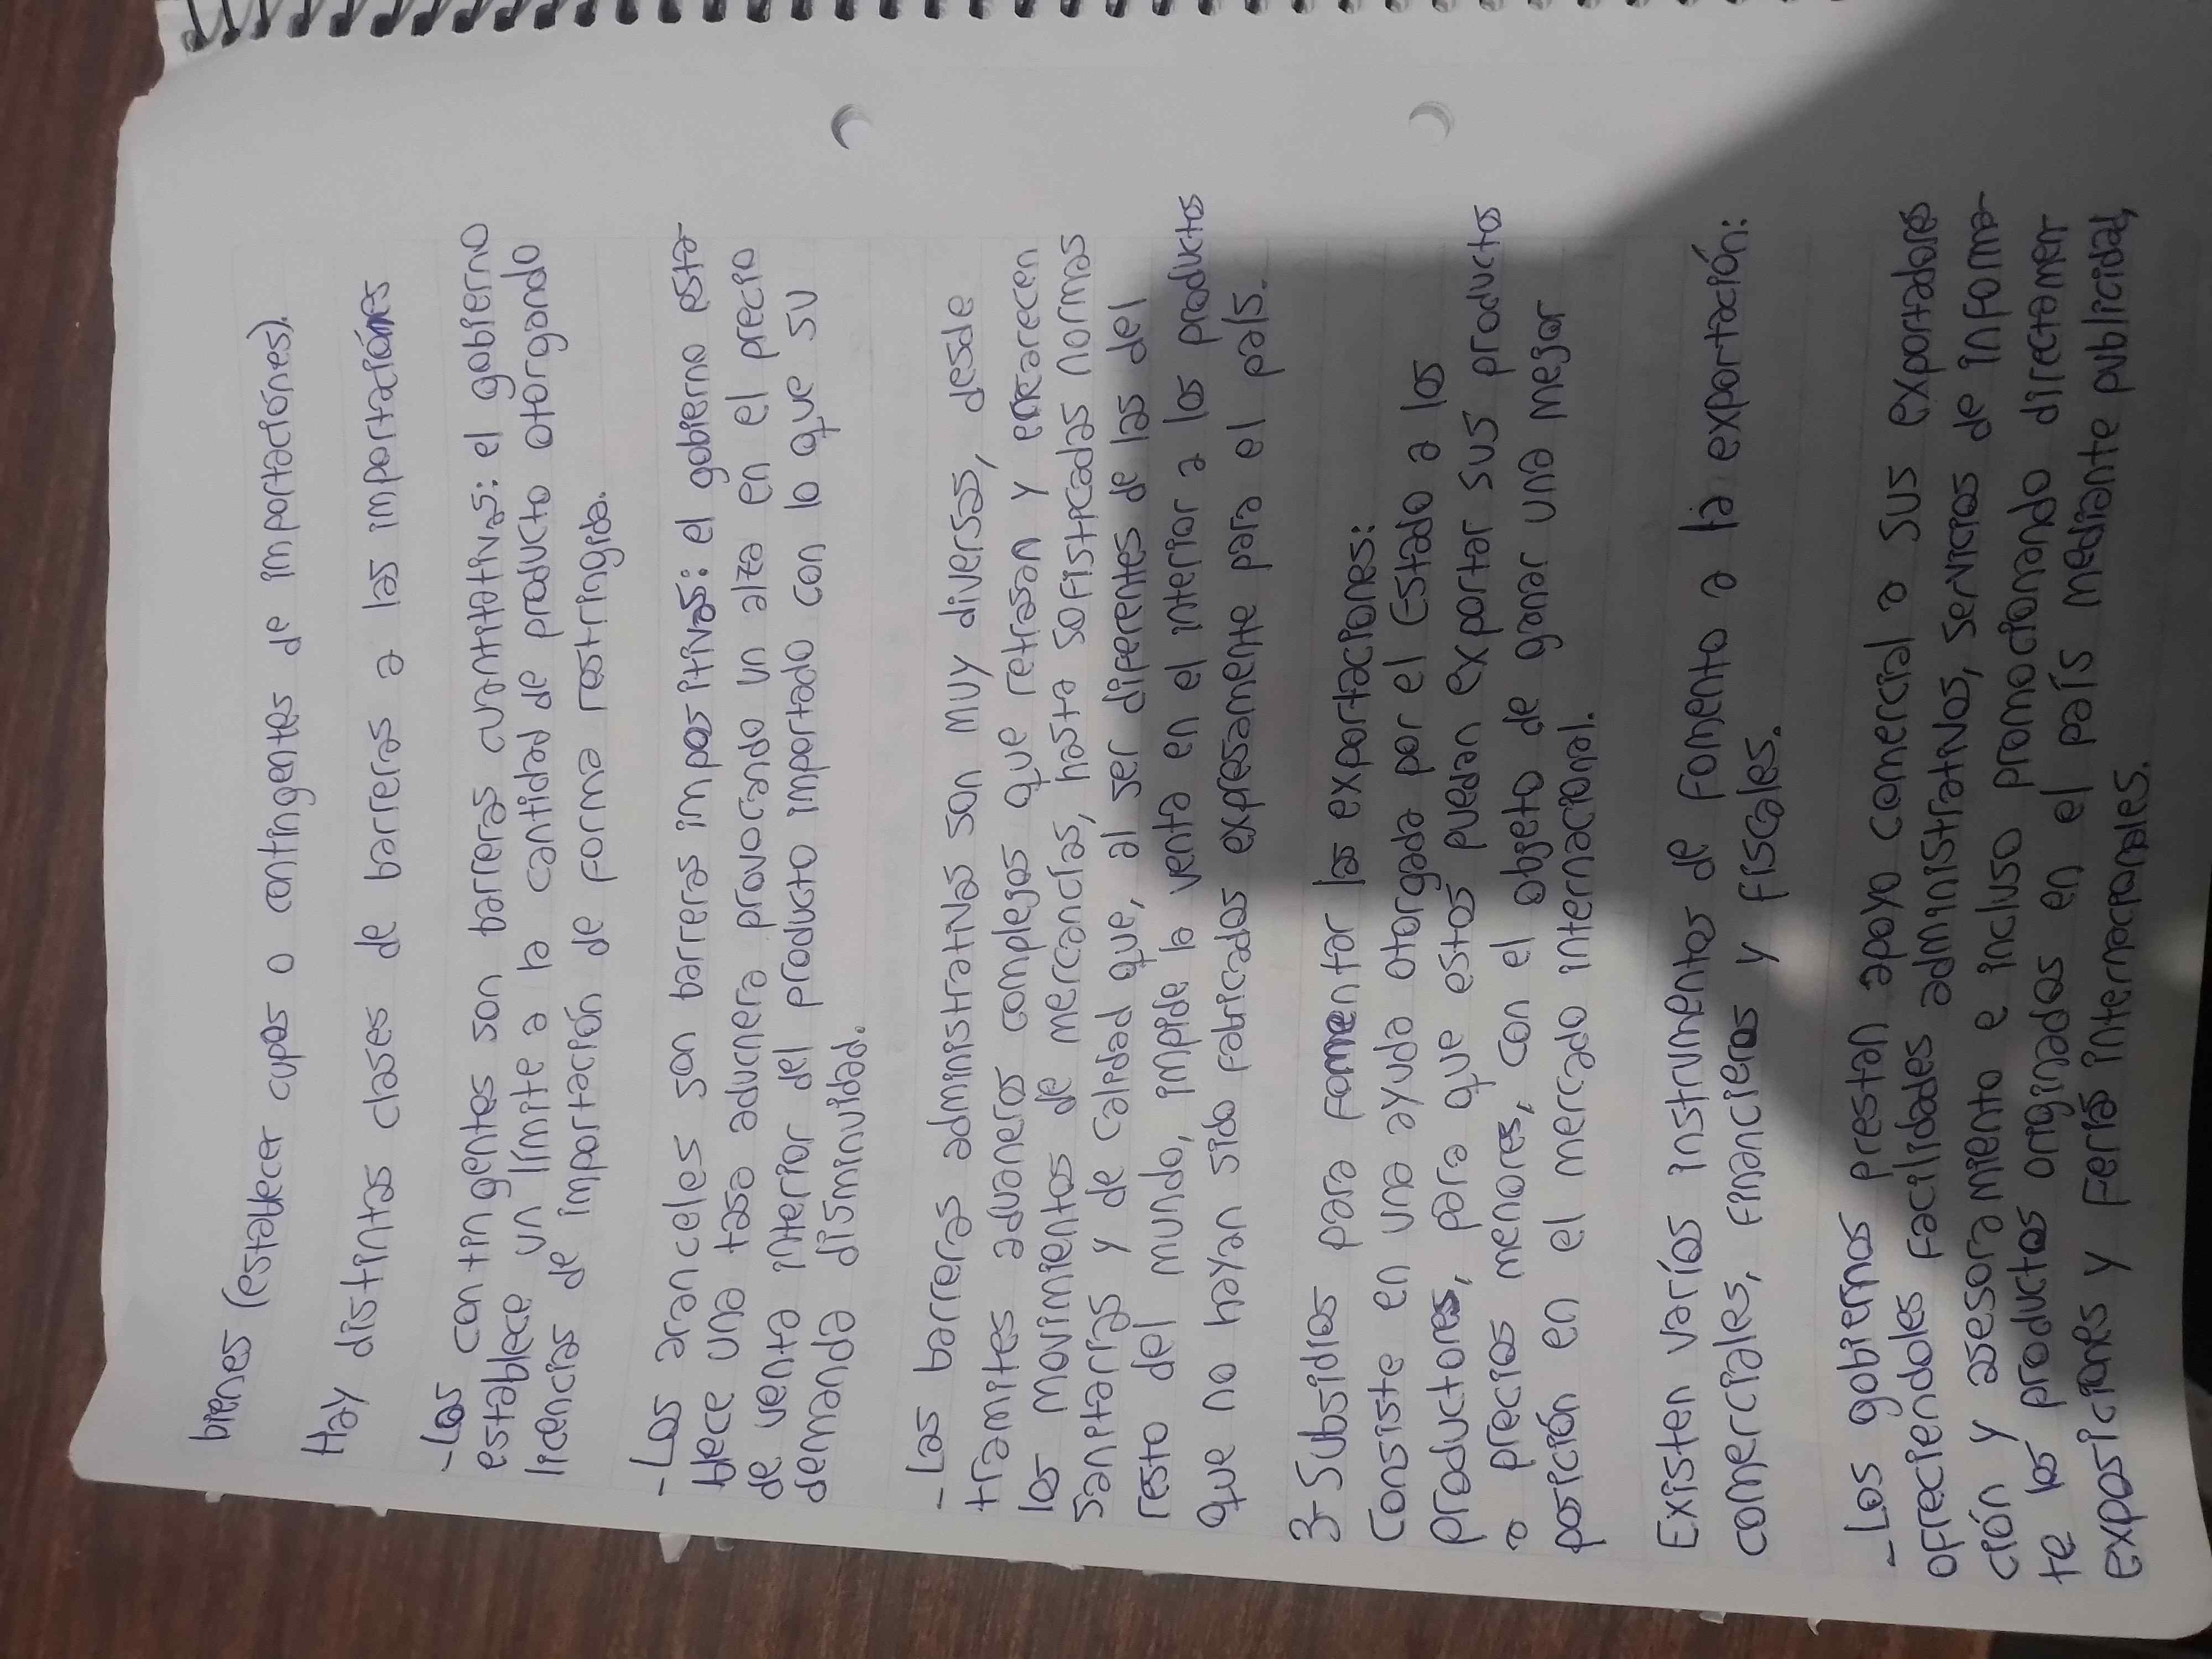 bienes (establecer cupos o contingentes de importaciones).
Hay distintas clases de barreras a las importaciones
-Los contingentes son barreras cuantitativas: el gobierno
establece un límite a la cantidad de producto otorgando
licencias de importación de forma restringida.
-Los aranceles son barreras impositivas: el gobierno esta-
blece una tasa aducnera provocando un alza en el precio
de venta interior del producto importado con lo que su
demanda disminuidad.
-Las barreras administrativas son muy diversas, desde
tramites aduaneros complejos que retrasan y encarecen
los movimientos de mercancías, hasta sofisticadas normas
sanitarias y de calidad que, al ser diferentes de las del
resto del mundo, impide la venta en el interior a los productos
que no hayan sido fabricados expresamente para el país.
3-Subsidios para fomentar las exportaciones:
Consiste en una ayuda otorgada por el Estado a los
productores, para que estos puedan exportar sus productos
a precios menores, con el objeto de ganar una mejor
posición en el mercado internacional.
Existen varios instrumentos de fomento a la exportación:
comerciales, financieros y fiscales.
-Los gobiernos prestan apoyo comercial a sus exportadores
ofreciendoles facilidades administrativos, servicios de informa-
ción y asesoramiento e incluso promocionando directamen-
te los productos originados en el país mediante publicidad,
exposiciones y ferias internacionales.